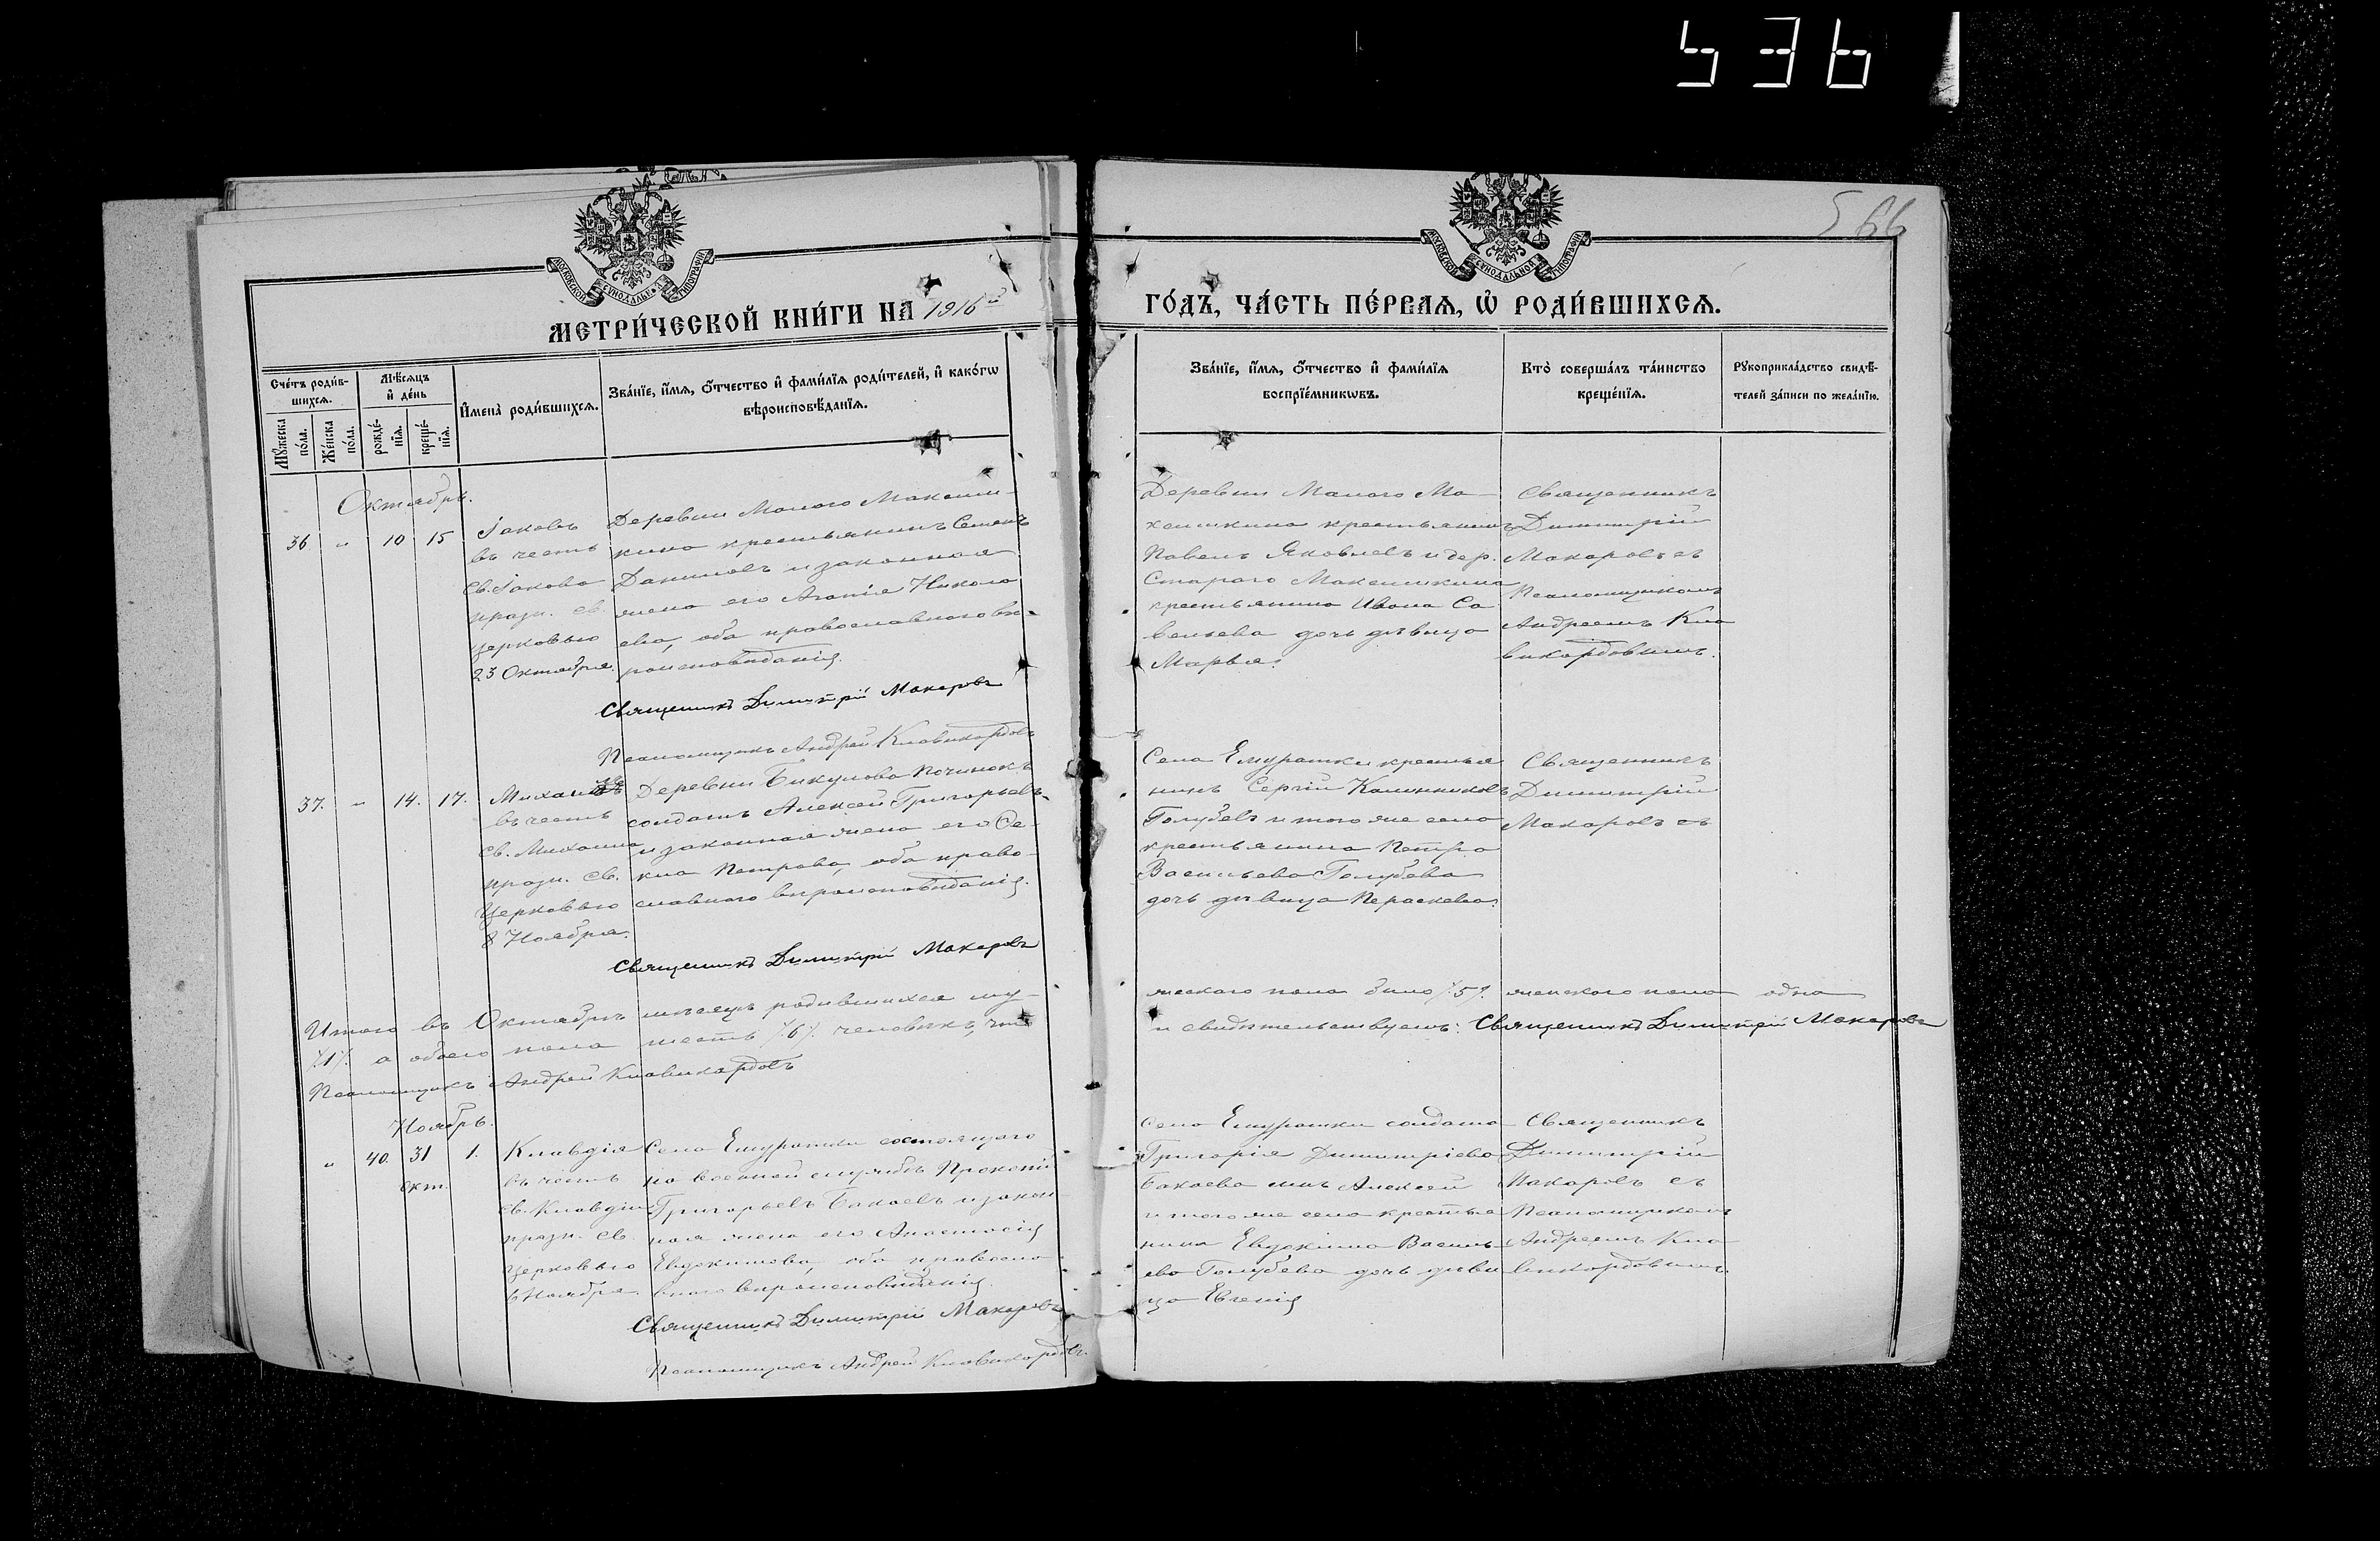 536
566
МОСКОВСКОЙ СУНОДАЛЬНОЙ ТИПОГРАФІИ
МОСКОВСКОЙ СУНОДАЛЬНОЙ ТИПОГРАФІИ
МЕТРИ́ЧЕСКОЙ КНИ́ГИ НА 1916й ГО́ДЪ, ЧА́СТЬ ПЕ́РВАѦ, Ѽ РОДИ́ВШИХСѦ.
Сче́тъ роди́в-
шихсѧ.
Мꙋ́жеска
по́ла.
Же́нска
по́ла.
Мѣ́сѧцъ
и҆ де́нь
рожде́-
нїѧ.
креще́-
нїѧ.
И҆мена̀ роди́вшихсѧ.
Зва́нїе, и҆́мѧ, ѻ҆́тчество и҆ фами́лїѧ роди́телей, и҆ како́гѡ
вѣроисповѣ́данїѧ.
Зва́нїе, и҆́мѧ, ѻ҆́тчество и҆ фами́лїѧ
воспрїе́мникѡвъ.
Кто̀ соверша́лъ та́инство
креще́нїѧ.
Рꙋкоприкла́дство свидѣ́-
телей за́писи по жела́нїю.
Октябрь.
36 „ 10 15
Іаковъ
въ честь
св. Іакова
празн. св.
церковью
23 Октября.
Деревни Малого Максим-
кина крестьянинъ Семенъ
Даниловъ и законная
жена его Агапія Никола
ева, оба православного вѣ-
роисповѣданія.
Священникъ Димитрій Макаровъ
Псаломщикъ Андрей Клавикордовъ
Деревни Малого Ма-
ксимкина крестьянинъ
Павелъ Яковлевъ и дер.
Старого Максимкина
крестьянина Ивана Са
вельева дочь дѣвица
Марья.
Священникъ
Димитрій
Макаровъ съ
Псаломщикомъ
Андреемъ Кла
викордовымъ.
37. „ 14. 17.
Михаилъ
въ честь
св. Михаила
празн. св.
Церковью
8 Ноября.
Деревни Бикулова Починокъ
солдатъ Алексей Григорьевъ
и законная жена его Фе-
кла Петрова, оба право-
славного вѣроисповѣданія.
Священникъ Димитрій Макаровъ
Села Емурашки крестья
нинъ Сергій Калинниковъ
Голубевъ и того же села
крестьянина Петра
Васильева Голубева
дочь дѣвица Параскева.
Священникъ
Димитрій
Макаровъ съ
Итого въ Октябрѣ мѣсяцѣ родившихся му-
жескаго пола было /5/. женского пола одна
/1/. а обоего пола шесть /6/. человѣкъ, что
и свидѣтельствуемъ: Священникъ Димитрій Макаровъ
Псаломщикъ Андрей Клавикордовъ
Ноябрь.
„ 40. 31 1.
окт.
Клавдія
въ честь
св. Клавдіи
празн. св.
церковью
6 Ноября.
Села Емурашки состоящаго
на военной службѣ Прокопій
Григорьевъ Бакаевъ и закон-
ная жена его Анастасія
Евдокимова, оба правосла
вного вѣроисповѣданія.
Священникъ Димитрій Макаровъ
Псаломщикъ Андрей Клавикордовъ.
Села Емурашки солдата
Григорія Димитріева
Бакаева сынъ Алексей
и того же села крестья
нина Евдокима Василь
ева Голубева дочь дѣви
ца Евгенія
Священникъ
Димитрій
Макаровъ съ
Псаломщикомъ
Андреемъ Кла
викордовымъ